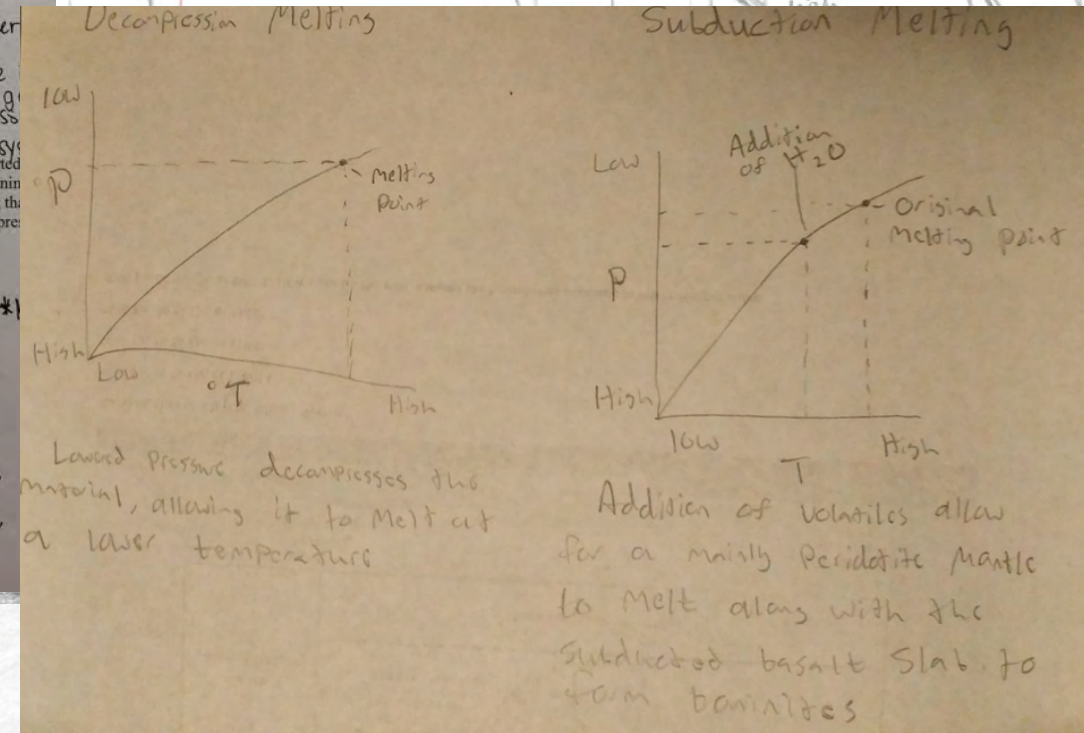 Decompression Melting
low
P
melting
Point
High
Low
°T
High
Lowerd Pressure decompresses the
material, allowing it to Melt at
a lower temperature
Subduction Melting
Low
Addition
of H₂O
Original
Melting Point
P
High
low
High
T
Addition of volatiles allow
for a mainly Peridotite Mantle
to Melt along with the
Subducted basalt Slab to
form boninites